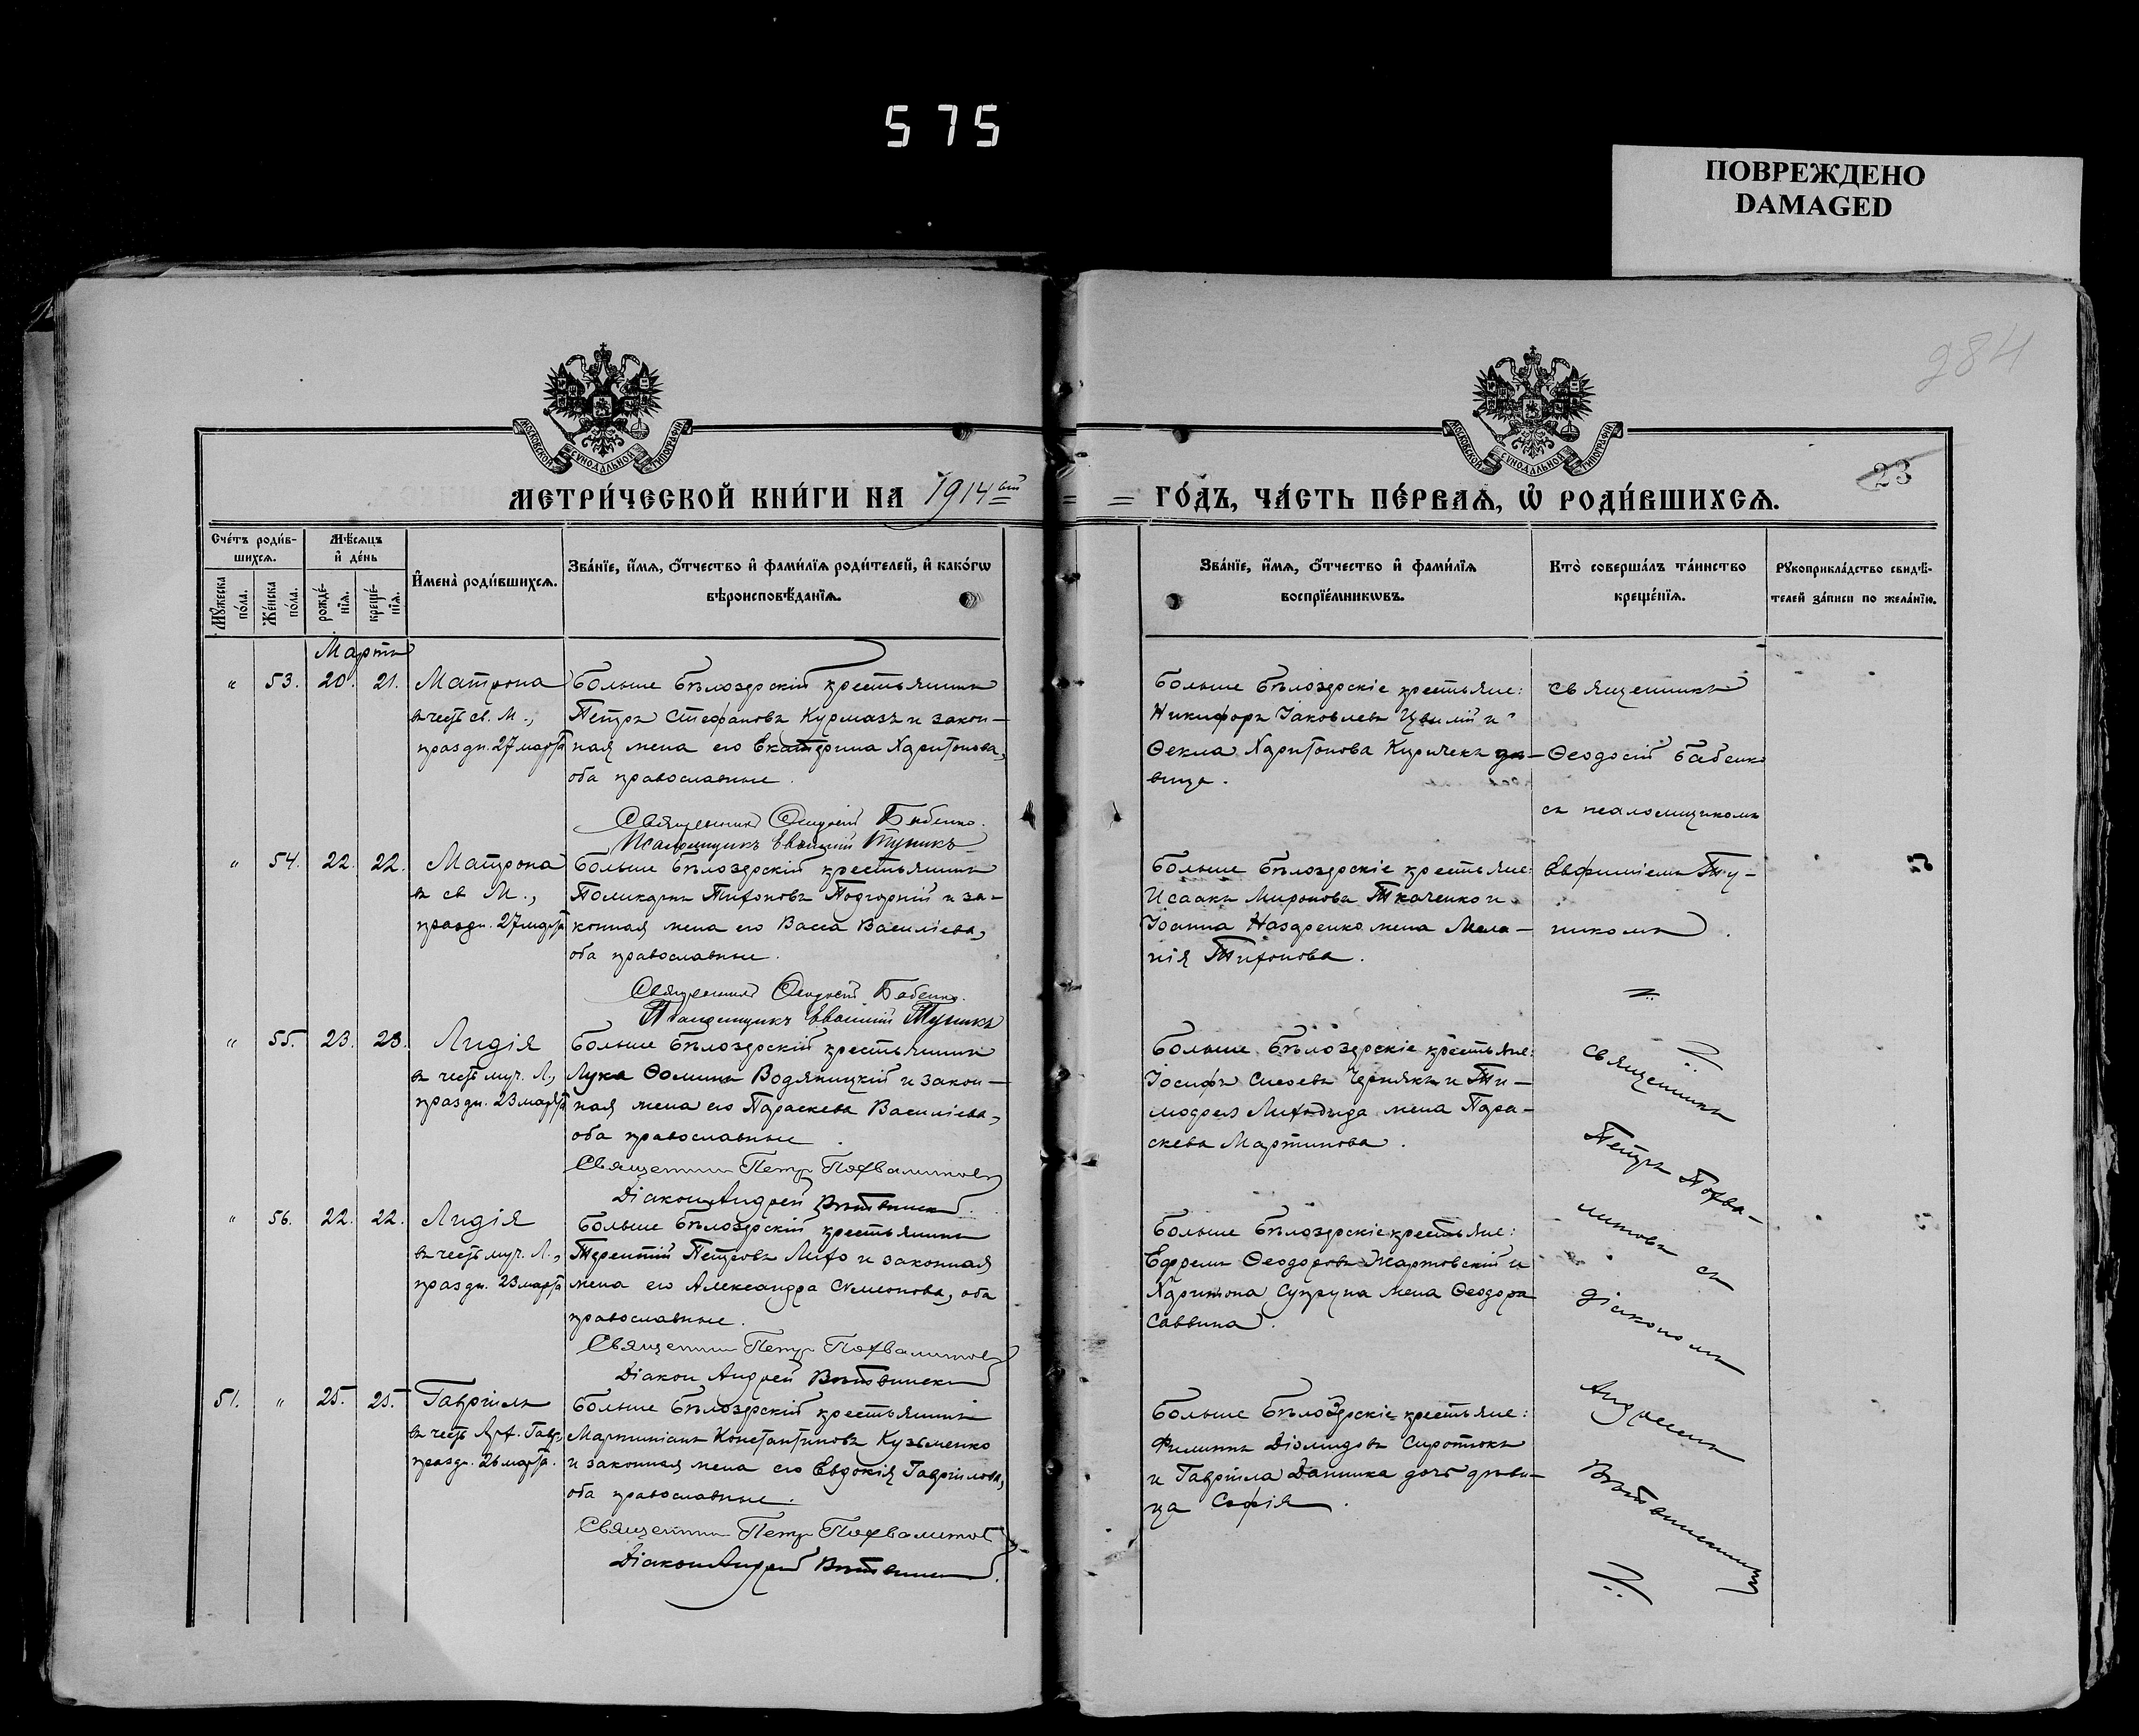 575
ПОВРЕЖДЕНО
DAMAGED
284
МОСКОВСКОЙ СѴНОДАЛЬНОЙ ТИПОГРАФІИ
МОСКОВСКОЙ СѴНОДАЛЬНОЙ ТИПОГРАФІИ
23
МЕТРИ́ЧЕСКОЙ КНИ́ГИ НА 1914ый
ГО́ДЪ, ЧА́СТЬ ПЕ́РВАѦ, Ѡ҆ РОДИ́ВШИХСѦ.
Сче́тъ роди́в-
шихсѧ.
Мѣ́сѧцъ
и҆ де́нь
Мꙋ́жеска по́ла.
Же́нска по́ла.
рожде́-
нїѧ.
креще́-
нїѧ.
И҆мена̀ роди́вшихсѧ.
Зва́нїе, и҆́мѧ, ѻ҆́тчество и҆ фами́лїѧ роди́телей, и҆ како́гѡ
вѣроисповѣ́данїѧ.
Зва́нїе, и҆́мѧ, ѻ҆́тчество и҆ фами́лїѧ
воспрїе́мникѡвъ.
Кто̀ соверша́лъ та́инство
креще́нїѧ.
Рꙋкоприкла́дство свидѣ́-
телей за́писи по жела́нїю.
Марта
" 53. 20. 21. Матрона
въ честь св. М.,
праздн. 27 марта
Больше Бѣлозерскій крестьянинъ
Петръ Стефановъ Курмазъ и закон-
ная жена его Екатерина Харитонова,
оба православные.
Священникъ Ѳеодосій Бабенко.
Псаломщикъ Евфимій Туникъ
Больше Бѣлозерскіе крестьяне:
Никифоръ Іаковлевъ Цвилій и
Ѳекла Харитонова дѣ-
вица.
Священникъ
Ѳеодосій Бабенко
съ псаломщикомъ
Евфиміемъ Ту-
никомъ.
" 54. 22. 22. Матрона
въ св. М.,
праздн. 27 марта
Больше Бѣлозерскій крестьянинъ
Поликарпъ Тихоновъ Подгорний и за-
конная жена его Васса Василіева,
оба православные.
Священникъ Ѳеодосій Бабенко.
Псаломщикъ Евфимій Туникъ
Больше Бѣлозерскіе крестьяне:
Исаакъ Мироновъ Ткаченко и
Іоанна Назаренко жена Мела-
нія Тихонова.
" 55. 23. 23. Лидія
въ честь муч. Л.,
праздн. 23 марта
Больше Бѣлозерскій крестьянинъ
Лука Ѳоминъ Водяницкій и закон-
ная жена его Параскева Василіева,
оба православные.
Священникъ Петръ Похвалитовъ
Діаконъ Андрей Вѣтвинскій.
Больше Бѣлозерскіе крестьяне:
Іосифъ Сисоевъ Чернякъ и Ти-
моѳея жена Пара-
скева Мартинова.
Священникъ
Петръ Похва-
литовъ съ
діакономъ
Андреемъ
Вѣтвинскимъ
" 56. 22. 22. Лидія
въ честь муч. Л.,
праздн. 23 марта
Больше Бѣлозерскій крестьянинъ
Терентій Петровъ Лихо и законная
жена его Александра Симеонова, оба
православные.
Священникъ Петръ Похвалитовъ
Діаконъ Андрей Вѣтвинскій
Больше Бѣлозерскіе крестьяне:
Ефремъ Ѳеодоровъ Жартовскій и
Харитона Супруна жена Ѳеодора
Саввина.
51. " 25. 25. Гавріилъ
въ честь Арх. Гавр.,
праздн. 26 марта.
Больше Бѣлозерскій крестьянинъ
Мартиніанъ Константиновъ Кузьменко
и законная жена его Евдокія Гавріилова,
оба православные.
Священникъ Петръ Похвалитовъ
Діаконъ Андрей Вѣтвинскій.
Больше Бѣлозерскіе крестьяне:
Филиппъ Діомидовъ Сиротюкъ
и Гавріила Данника дочь дѣви-
ца Софія.